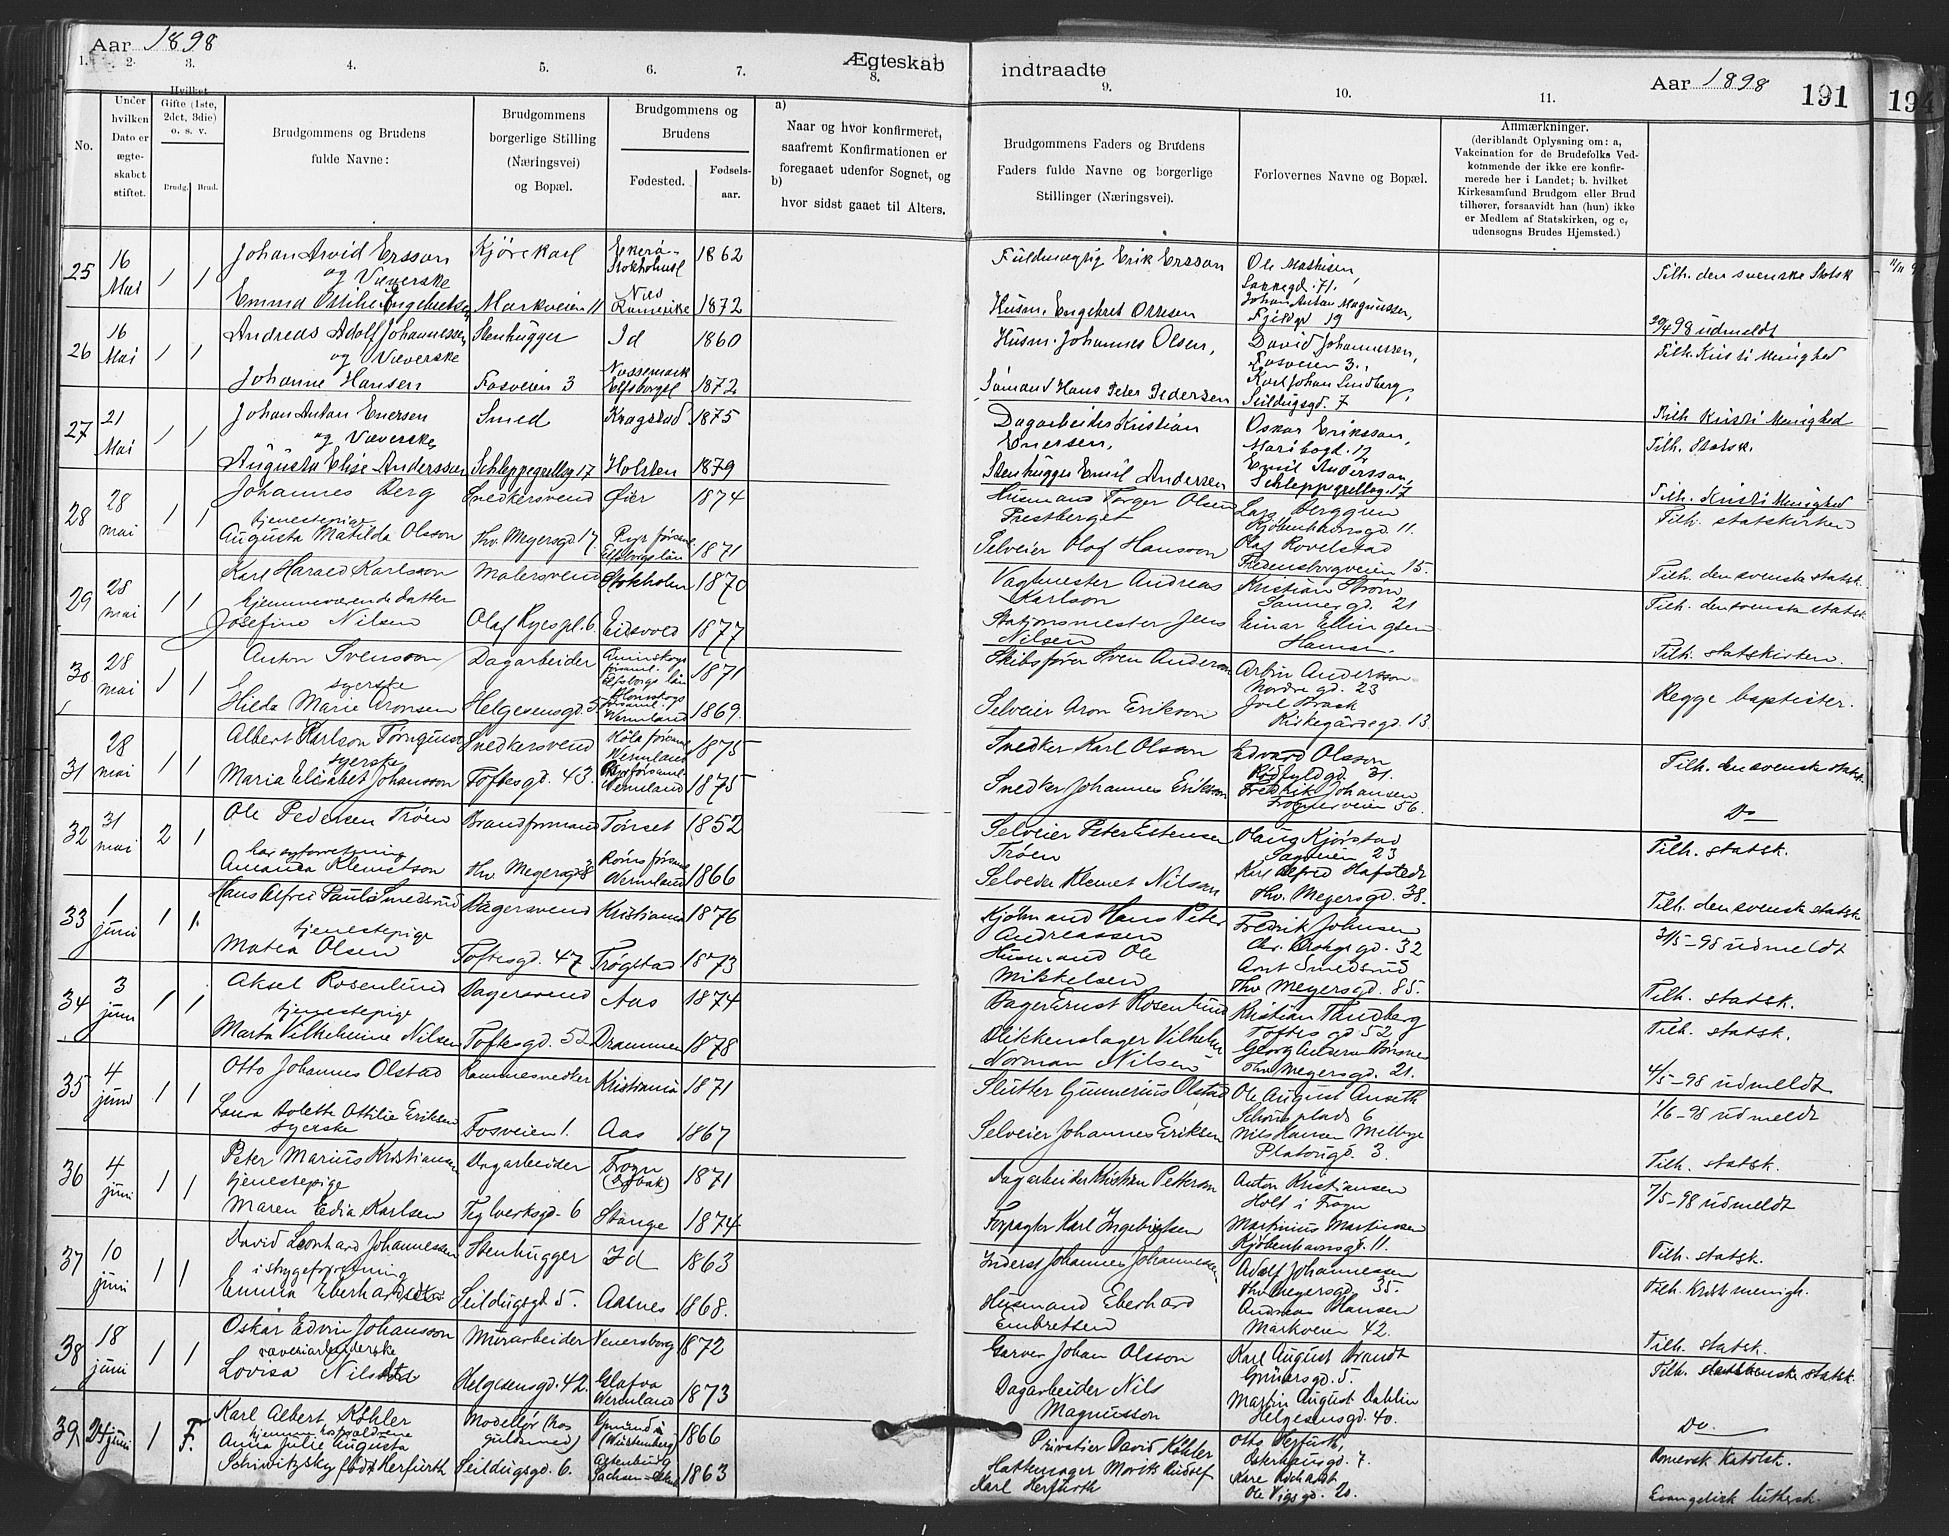 Aar 1898
Ægteskab
indtraadte
Aar 1898
191
194
1. 2. 3. 4. 5. 6. 7. 8. 9. 10. 11.
No.
Under
hvilken
Dato er
ægte-
skabet
stiftet.
Hvilket
Gifte (1ste,
2det, 3die)
o. s. v.
Brudg. Brud.
Brudgommens og Brudens
fulde Navne:
Brudgommens
borgerlige Stilling
(Næringsvei)
og Bopæl.
Brudgommens og
Brudens
Fødested.
Fødsels-
aar.
a)
Naar og hvor konfirmeret,
saafremt Konfirmationen er
foregaaet udenfor Sognet, og
b)
hvor sidst gaaet til Alters.
Brudgommens Faders og Brudens
Faders fulde Navne og borgerlige
Stillinger (Næringsvei).
Forlovernes Navne og Bopæl.
Anmærkninger.
(deriblandt Oplysning om: a,
Vakcination for de Brudefolks Ved-
kommende der ikke ere konfir-
merede her i Landet; b. hvilket
Kirkesamfund Brudgom eller Brud
tilhører, forsaavidt han (hun) ikke
er Medlem af Statskirken, og c,
udensogns Brudes Hjemsted.)
25 16 Mai 1 1
Johan Arvid Ersson
og Væverske
Kjørekarl
Markveien 11
Stokholm 1862
1872
Fuldmægtig Erik Ersson
Ole Mathisen,
Sannegd. 71.
Johan Anton Magnussen,
19
Tilh. den svenske Statsk
26 16 Mai 1 1
Andreas Adolf Johannessen
og Væverske
Johanne Hansen
Stenhugger
Fosveien 3
Id 1860
1872
Husm. Johannes Olsen,
Hans Peter Pedersen
David Johannessen,
Fosveien 3.
Karl Johan Lindberg,
Seildugsgd. 7
98 udmeldt
Tilh. Kristi Menighed
27 21 Mai 1 1
Johan Anton Enersen
og Væverske
Augusta Elise Andersson
Smed
Schleppegrellsg 17
Kragstad 1875
Holsten 1879
Dagarbeider Kristian
Enersen,
Stenhugger Emil Andersen
Oskar Eriksson,
Maribogd. 12
Emil Andersson,
Schleppegrellsg. 17
Tilh. Kristi Menighed
Tilh. Statsk.
28 28 mai 1 1
Johannes Berg
tjenestepige
Augusta Matilda Olsson
Snedkersvend
Thv. Meyersgd 17
Øier 1874
1871
Husmand Torger Olsen
Prestberget
Selveier Olof Hansson
Lars Berggren
Kjøbenhavnsgd. 11.
Olaf Rovelstad
Fredensborgveien 15.
Tilh. Kristi Menighed
Tilh. statskirken
29 28 mai 1 1
Karl Harald Karlsson
hjemmeværende datter
Josefine Nilsen
Malersvend
Olaf Ryes pl. 6
Stokholm 1870
Eidsvold 1877
Vagtmester Andreas
Karlson
Stationsmester Jens
Nilsen
Kristian Strøm
Sannergd. 21
Einar Ellingsen
Hamar.
Tilh. den svenska statsk.
Tilh. den svenska statsk.
30 28 mai 1 1
Anton Svensson
syerske
Hilda Marie Aronsen
Dagarbeider
Helgesensgd. 5
Elfsborgs län 1871
Wermland 1869.
Skibsfører Sven Anderson
Selveier Aron Erikson
Andersson
Nordregd. 23
Joel Brask
Kirkegårdsgd. 13.
Tilh. statskirken.
Begge baptister.
31 28 mai 1 1
Albert Karlson Tørnqvist
syerske
Maria Elisabet Johansson
Snedkersvend
Toftesgd. 43.
Wermland 1875
Wermland 1875
Snedker Karl Olsson
Snedker Johannes Erikson
Edvard Olsson
Rødfyldgd. 31.
Fredrik Johansen
Frognerveien 56.
Tilh. den svenska statsk.
Do
32 31 mai 2 1
Ole Pedersen Trøen
har syforretning
Amanda Klemetson
Brandformand
Thv. Meyersgd 8
Tønset 1852
Wermland 1866
Selveier Peter Estensen
Trøen
Selveier Klemet Nilsson
Olaug Kjørstad
Sagveien 23
Karl Alfred Hofstedt
Thv. Meyersgd. 38.
Tilh. statsk.
Tilh. den svenske statsk
33 1 juni 1 1.
Hans Alfred Pauli Smedsrud
tjenestepige
Matea Olsen
Bagersvend
Toftesgd. 47
Kristiania 1876
Trøgstad 1873
Kjøbmand Hans Peter
Andreassen
Husmand Ole
Mikkelsen
Fredrik Johnsen
Chr. Krohgsgd. 32
Arnt Smedsrud
Thv Meyersgd. 85.
31/5-98 udmeldt
Tilh. statsk.
34 3 juni 1 1
Aksel Rosenlund
tjenestepige
Marta Vilhelmine Nilsen
Bagersvend
Toftesgd. 52
Aas 1874
Drammen 1878
Bager Ernst Rosenlund
Blikkenslager Vilhelm
Norman Nilsen
Kristian Thudberg
Toftesgd 52
Thv Meyersgd. 21.
Tilh. statsk.
4/5-98 udmeldt
35 4 juni 1 1
Otto Johannes Olstad
Laura Bolette Ottilie Eriksen
syerske
Rammesnedker
Fosveien 1.
Kristiania 1871
Aas 1867
Slutter Gunnerius Olstad
Selveier Johannes Eriksen
Ole August Anseth
Schous plads 6
Nils Hansen Melbye
Platousgd. 3.
1/6-98 udmeldt
Tilh. statsk.
36 4 juni 1 1
Peter Marius Kristiansen
tjenestepige
Maren Edia Karlsen
Dagarbeider
Teglverksgd. 6
Frogn
(Drøbak) 1871
Stange 1874
Dagarbeider Kristian Petterson
Forpagter Karl Ingebrigtsen
Anton Kristiansen
Holt i Frogn
Martinius Martinssen
Kjøbenhavnsgd. 11.
7/5-98 udmeldt
Tilh. statsk.
37 10 juni 1 1
David Leonhard Johannessen
i strygeforretning
Emma Eberhardsen
Stenhugger
Seildugsgd 5.
Id 1863
Aasnes 1868.
Inderst Johannes Johannessen
Husmand Eberhard
Embretsen
Adolf Johannessen
Thv Meyersgd. 35.
Andreas Hansen
Markveien 42.
Tilh. Kristi menigh.
Tilh. statsk.
38 18 juni 1 1
Oskar Edvin Johansson
væveriarbeiderske
Lovisa Nilsdtr
Murarbeider
Helgesensgd. 42.
Venersborg 1872
Glafva
Wermland 1873
Garver Johan Olsson
Dagarbeider Nils
Magnusson
Karl August Brandt
Grünersgd. 5.
Martin August Dahlin
Helgesensgd. 40.
Tilh. svenske statsk.
Do
39 24 juni 1 F.
Karl Albert Köhler
Anna Julie Augusta
Schiwitzsky født Herfürth
Modellør (hos
guldsmed)
Seildugsgd. 6.
Gmünd i
(Würtenberg) 1866
Altenburg
1863
Privatier David Köhler
Hattemager Morits Rudolf
Karl Herfürth
Otto Herfurth,
Osterhausgd. 7.
Kare Richardt
Ole Vigsgd. 20.
Romersk Katolsk.
Evangelisk luthersk.